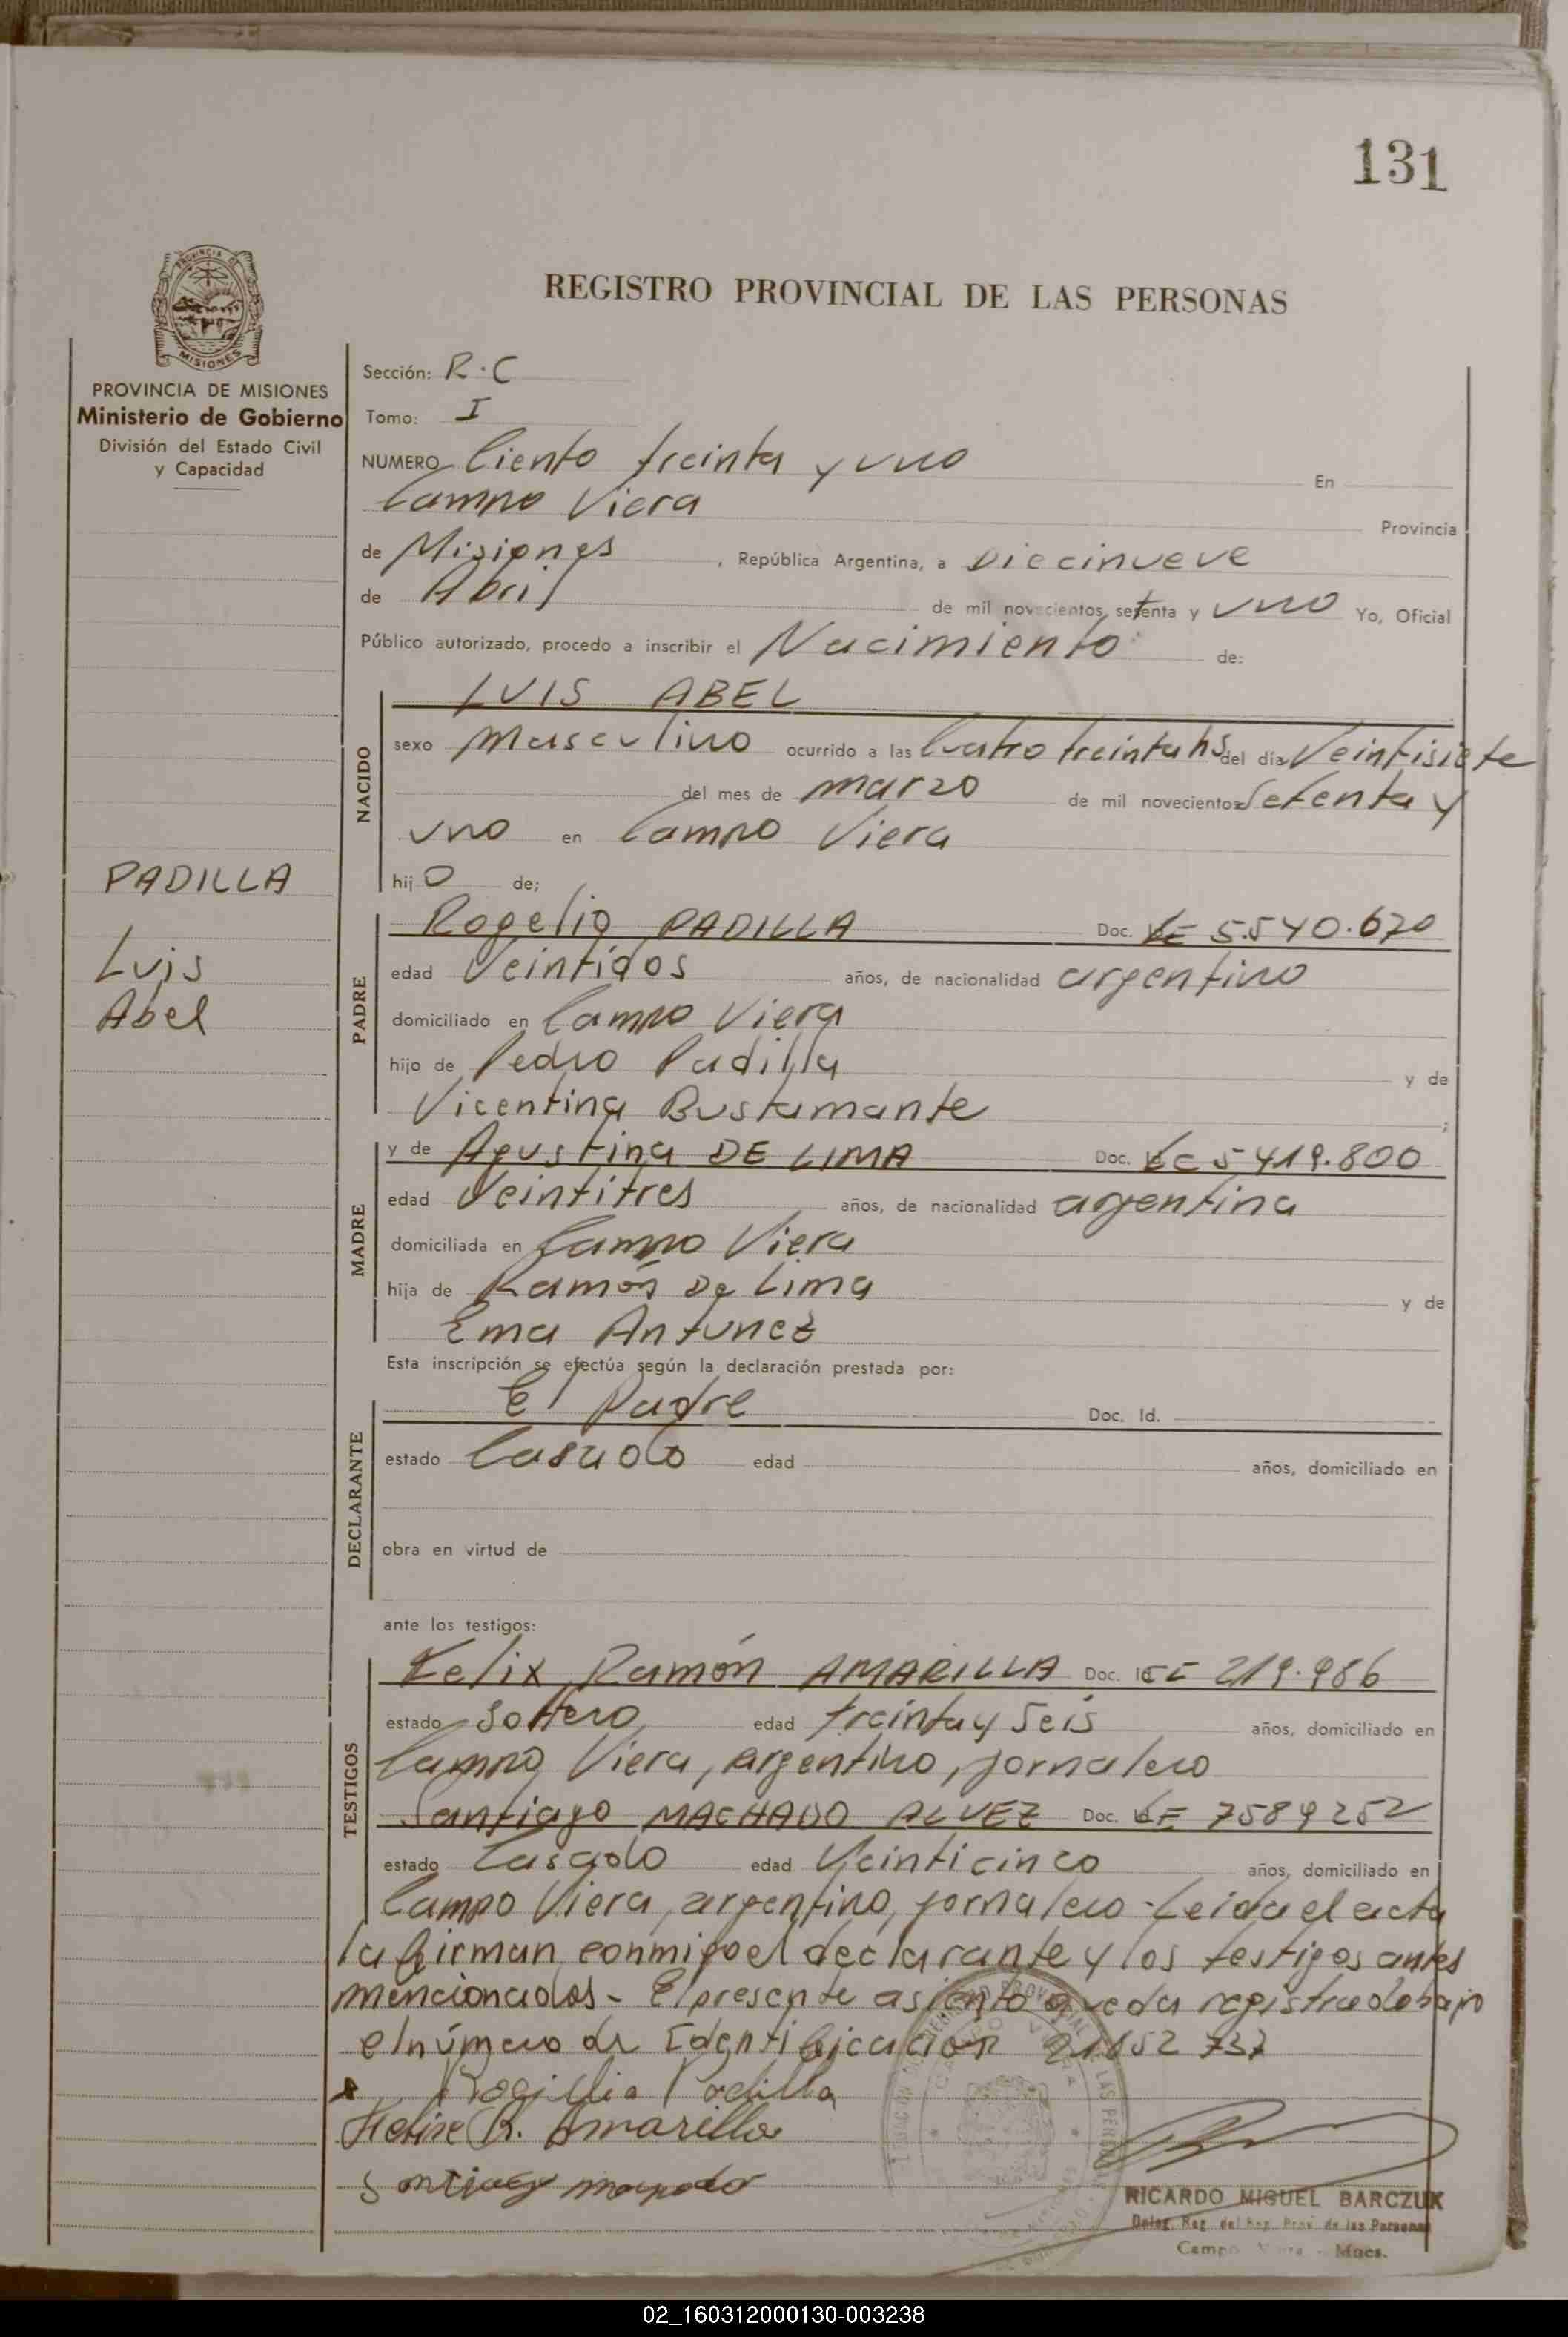 131
PROVINCIA DE
MISIONES
PROVINCIA DE MISIONES
Ministerio de Gobierno
División del Estado Civil
y Capacidad
REGISTRO PROVINCIAL DE LAS PERSONAS
Sección: R.C
Tomo: I
NUMERO Ciento treinta y uno En
Campo Viera Provincia
de Misiones, República Argentina, a Diecinueve
de Abril de mil novecientos setenta y uno Yo, Oficial
Público autorizado, procedo a inscribir el Nacimiento de:
NACIDO
LUIS ABEL
sexo Masculino ocurrido a las Cuatro treinta hs del día Veintisiete
del mes de marzo de mil novecientos Setenta y
uno en Campo Viera
hijo de;
PADILLA
Luis
Abel
PADRE
Rogelio PADILLA Doc. LE 5.540.670
edad Veintidos años, de nacionalidad argentino
domiciliado en Campo Viera
hijo de Pedro Padilla y de
Vicentina Bustamante ;
MADRE
y de Agustina DE LIMA Doc. LC 5419.800
edad Veintitres años, de nacionalidad argentina
domiciliada en Campo Viera
hija de Ramón De Lima y de
Ema Antunez
Esta inscripción se efectúa según la declaración prestada por:
DECLARANTE
El Padre Doc. Id.
estado Casado edad años, domiciliado en
obra en virtud de
ante los testigos:
TESTIGOS
Felix Ramón AMARILLA Doc. 219.986
estado Soltero edad treinta y Seis años, domiciliado en
Campo Viera, argentino, jornalero
Santiago MACHADO ALVEZ Doc. LE 7589252
estado Casado edad Veinticinco años, domiciliado en
Campo Viera, argentino, jornalero - Leida el acta
la firman conmigo el declarante y los testigos antes
mencionados - El presente asiento queda registrado bajo
el número de Identificacion 21852 737
Rogillio Padilla
Felix R. Amarilla
Santiago machado
RICARDO MIGUEL BARCZUK
Deleg. Reg. del Reg. Prov. de las Personas
Campo Viera - Mnes.
02_160312000130-003238